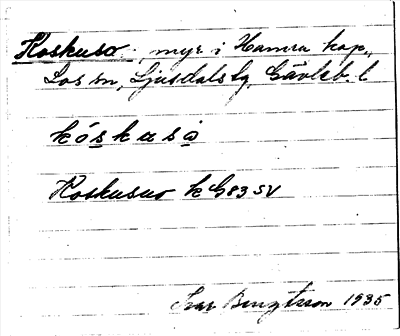 Koskuso: myr i Hamra kap.,
Los sn, Ljusdals tg, Gävleb. l
kóskusò
Koskusuo k G83 SV
Ivar Bengtsson 1935